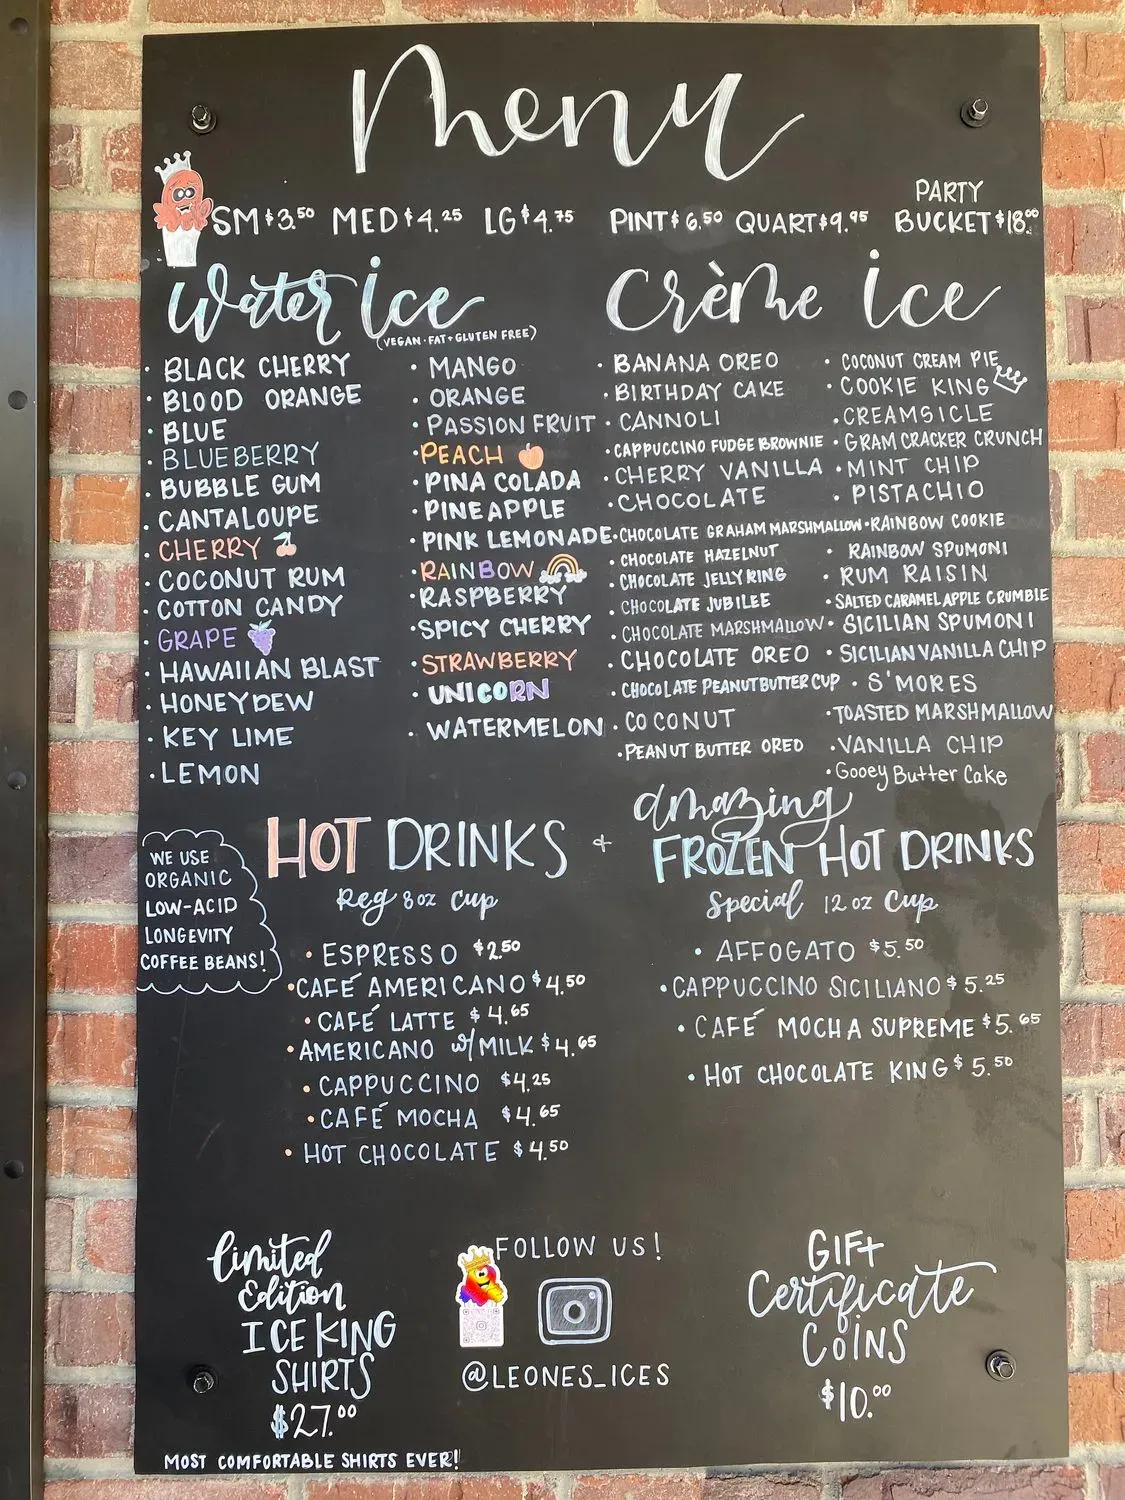 Menu
PARTY
SM $3.50 MED $4.25 LG $4.75 PINT $6.50 QUART $9.95 BUCKET $18.00
Water Ice
(VEGAN · FAT + GLUTEN FREE)
· BLACK CHERRY
· BLOOD ORANGE
· BLUE
· BLUEBERRY
· BUBBLE GUM
· CANTALOUPE
· CHERRY
· COCONUT RUM
· COTTON CANDY
· GRAPE
· HAWAIIAN BLAST
· HONEYDEW
· KEY LIME
· LEMON
· MANGO
· ORANGE
· PASSION FRUIT
· PEACH
· PINA COLADA
· PINEAPPLE
· PINK LEMONADE
· RAINBOW
· RASPBERRY
· SPICY CHERRY
· STRAWBERRY
· UNICORN
· WATERMELON
Crème Ice
· BANANA OREO
· BIRTHDAY CAKE
· CANNOLI
· CAPPUCCINO FUDGE BROWNIE
· CHERRY VANILLA
· CHOCOLATE
· CHOCOLATE GRAHAM MARSHMALLOW
· CHOCOLATE HAZELNUT
· CHOCOLATE JELLY RING
· CHOCOLATE JUBILEE
· CHOCOLATE MARSHMALLOW
· CHOCOLATE OREO
· CHOCOLATE PEANUT BUTTER CUP
· COCONUT
· PEANUT BUTTER OREO
· COCONUT CREAM PIE
· COOKIE KING
· CREAMSICLE
· GRAM CRACKER CRUNCH
· MINT CHIP
· PISTACHIO
· RAINBOW COOKIE
· RAINBOW SPUMONI
· RUM RAISIN
· SALTED CARAMEL APPLE CRUMBLE
· SICILIAN SPUMONI
· SICILIAN VANILLA CHIP
· S'MORES
· TOASTED MARSHMALLOW
· VANILLA CHIP
· Gooey Butter Cake
WE USE
ORGANIC
LOW-ACID
LONGEVITY
COFFEE BEANS!
HOT DRINKS +
Reg 8 oz Cup
· ESPRESSO $2.50
· CAFÉ AMERICANO $4.50
· CAFÉ LATTE $4.65
· AMERICANO w/ MILK $4.65
· CAPPUCCINO $4.25
· CAFÉ MOCHA $4.65
· HOT CHOCOLATE $4.50
amazing
FROZEN HOT DRINKS
Special 12 oz Cup
· AFFOGATO $5.50
· CAPPUCCINO SICILIANO $5.25
· CAFÉ MOCHA SUPREME $5.65
· HOT CHOCOLATE KING $5.50
Limited
Edition
ICE KING
SHIRTS
$27.00
MOST COMFORTABLE SHIRTS EVER!
FOLLOW US!
@LEONES_ICES
GIFT
Certificate
COINS
$10.00